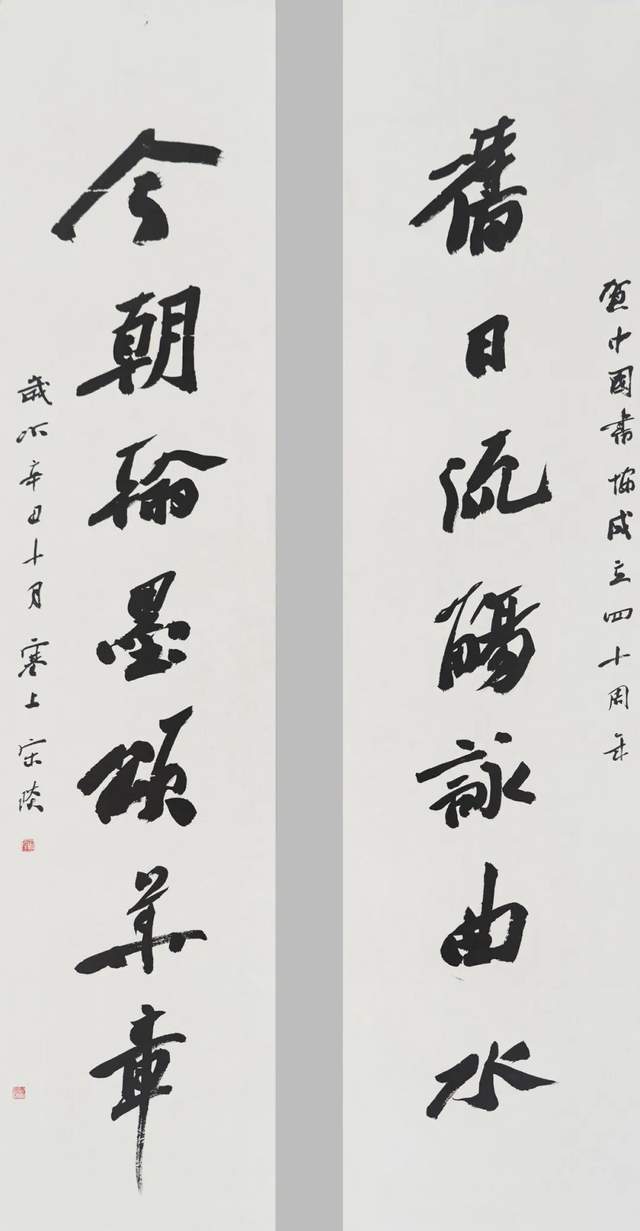 賀中国書協成立四十周年
舊日流觴詠曲水
今朝翰墨頌華章
歲次辛丑十月塞上宋琰